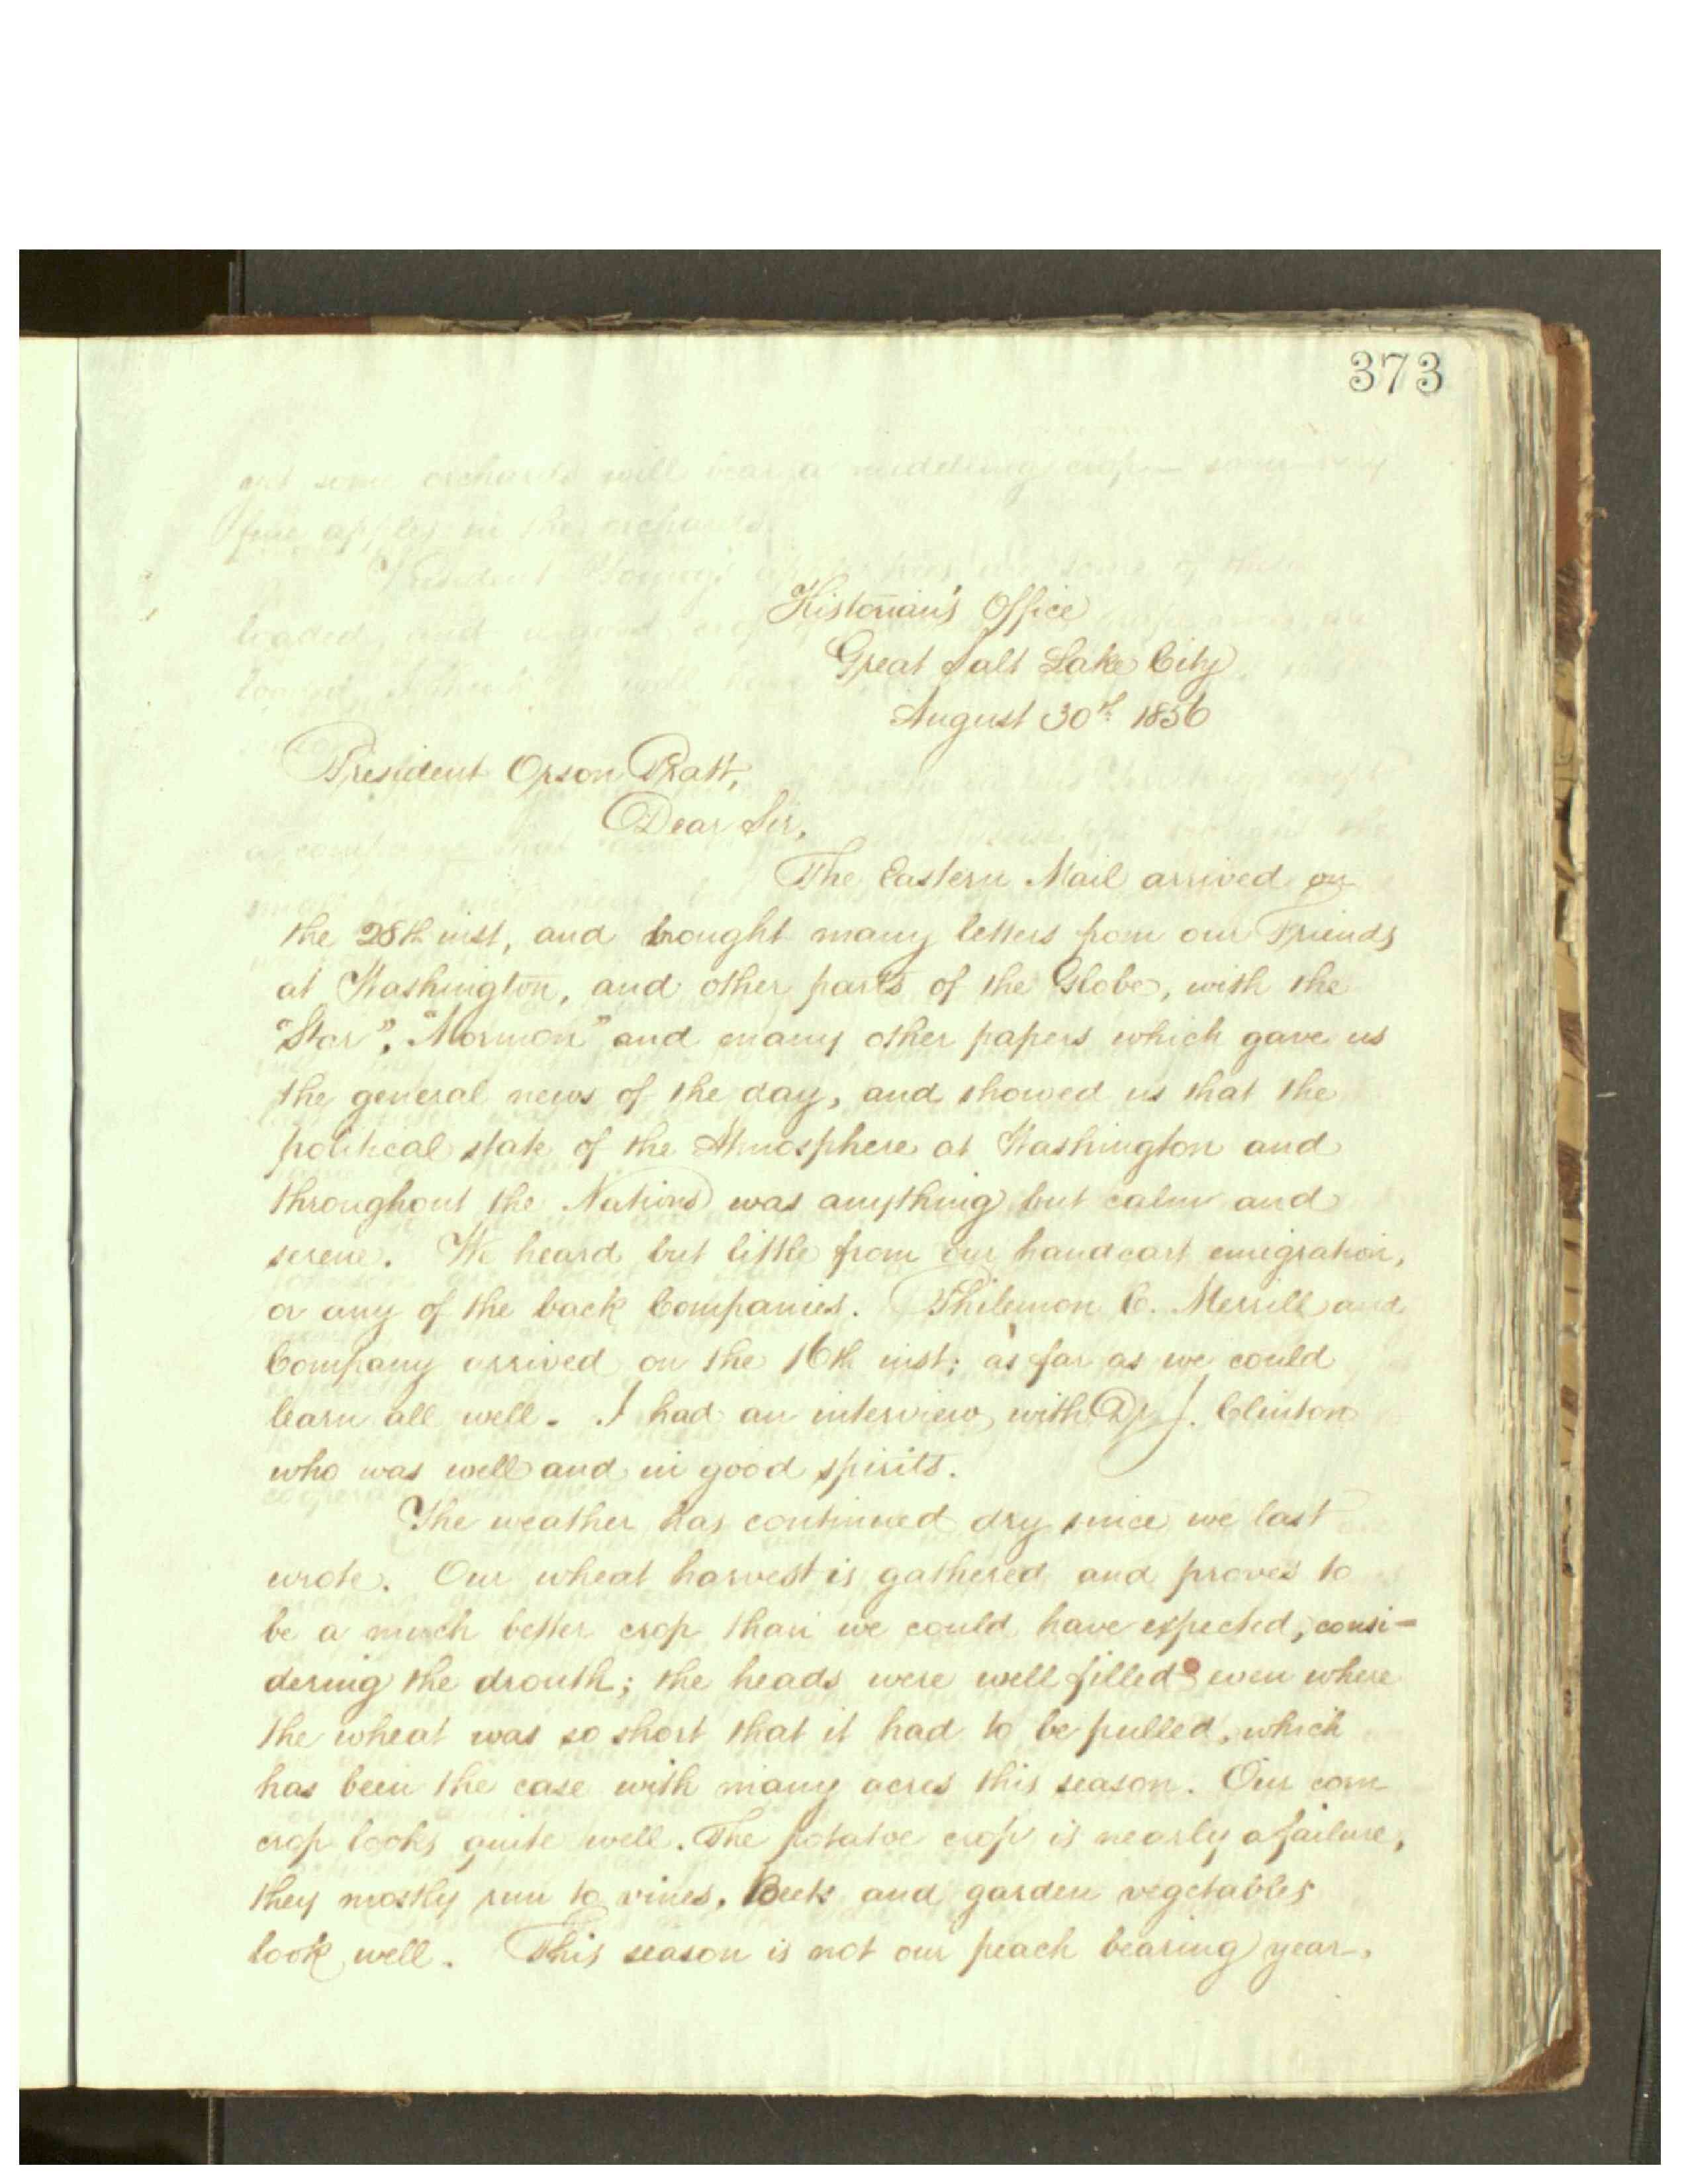 373
Historian's Office
Great Salt Lake City
August 30th 1856
President Orson Pratt,
Dear Sir,
The Eastern Mail arrived on
the 28th inst, and brought many letters from our Friends
at Washington, and other parts of the Globe, with the
"Star", "Mormon" and many other papers which gave us
the general news of the day, and showed us that the
political state of the Atmosphere at Washington and
throughout the Nations was anything but calm and
serene. We heard but little from our handcart emigration,
or any of the back Companies. Philemon C. Merrill and
Company arrived on the 16th inst; as far as we could
learn all well. I had an interview with Dr J. Clinton
who was well and in good spirits.
The weather has continued dry since we last
wrote. Our wheat harvest is gathered and proves to
be a much better crop than we could have expected, consi-
dering the drouth; the heads were well filled even where
the wheat was so short that it had to be pulled, which
has been the case with many acres this season. Our corn
crop looks quite well. The potatoe crop is nearly a failure,
they mostly run to vines. Beets and garden vegetables
look well. This season is not our peach bearing year,